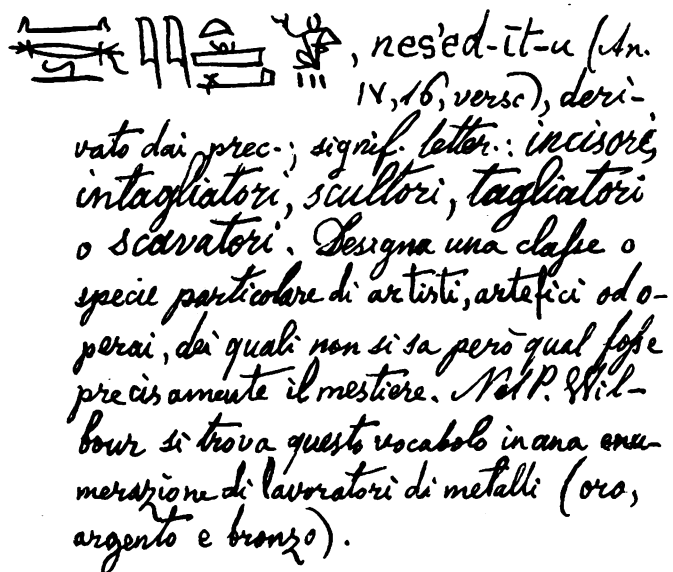 , nes'ed-ît-u (An.
IV, 16, verso), deri-
vato dai prec.; signif. letter.: incisori,
intagliatori, scultori, tagliatori
o scavatori. Designa una classe o
specie particolare di artisti, artefici od o-
perai, dei quali non si sa però qual fosse
precisamente il mestiere. Nel P. Wil-
bour si trova questo vocabolo in una enu-
merazione di lavoratori di metalli (oro,
argento e bronzo).